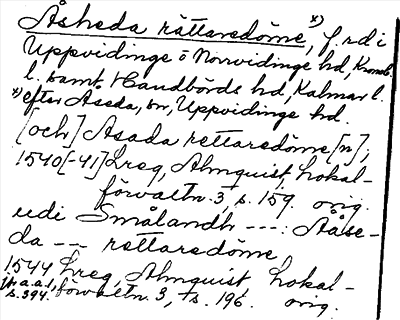 Åsheda rättaredöme, x) f. rd i
Uppvidinge o Norrvidinge hd, Kronob.
l. samt Handbörds hd, Kalmar l.
x) efter Åseda, sn, Uppvidinge hd.
[och] Asada rettaredöme [n];
1540[-41] Lreg, Almquist, Lokal-
förvaltn. 3, s. 159. orig.
udi Smålandh ---: Ååse-
da --- rettaredöme
1544 Lreg, Almquist, Lokal-
förvaltn. 3, s. 196. orig.
jfr a.a.,
s. 394.